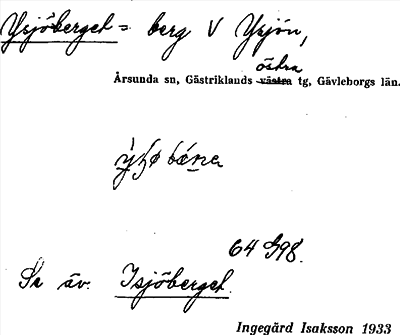 Ysjöberget = berg V Ysjön,
östra
Årsunda sn, Gästriklands västra tg, Gävleborgs län.
64 G 98.
Se äv. Isjöberget.
Ingegärd Isaksson 1933